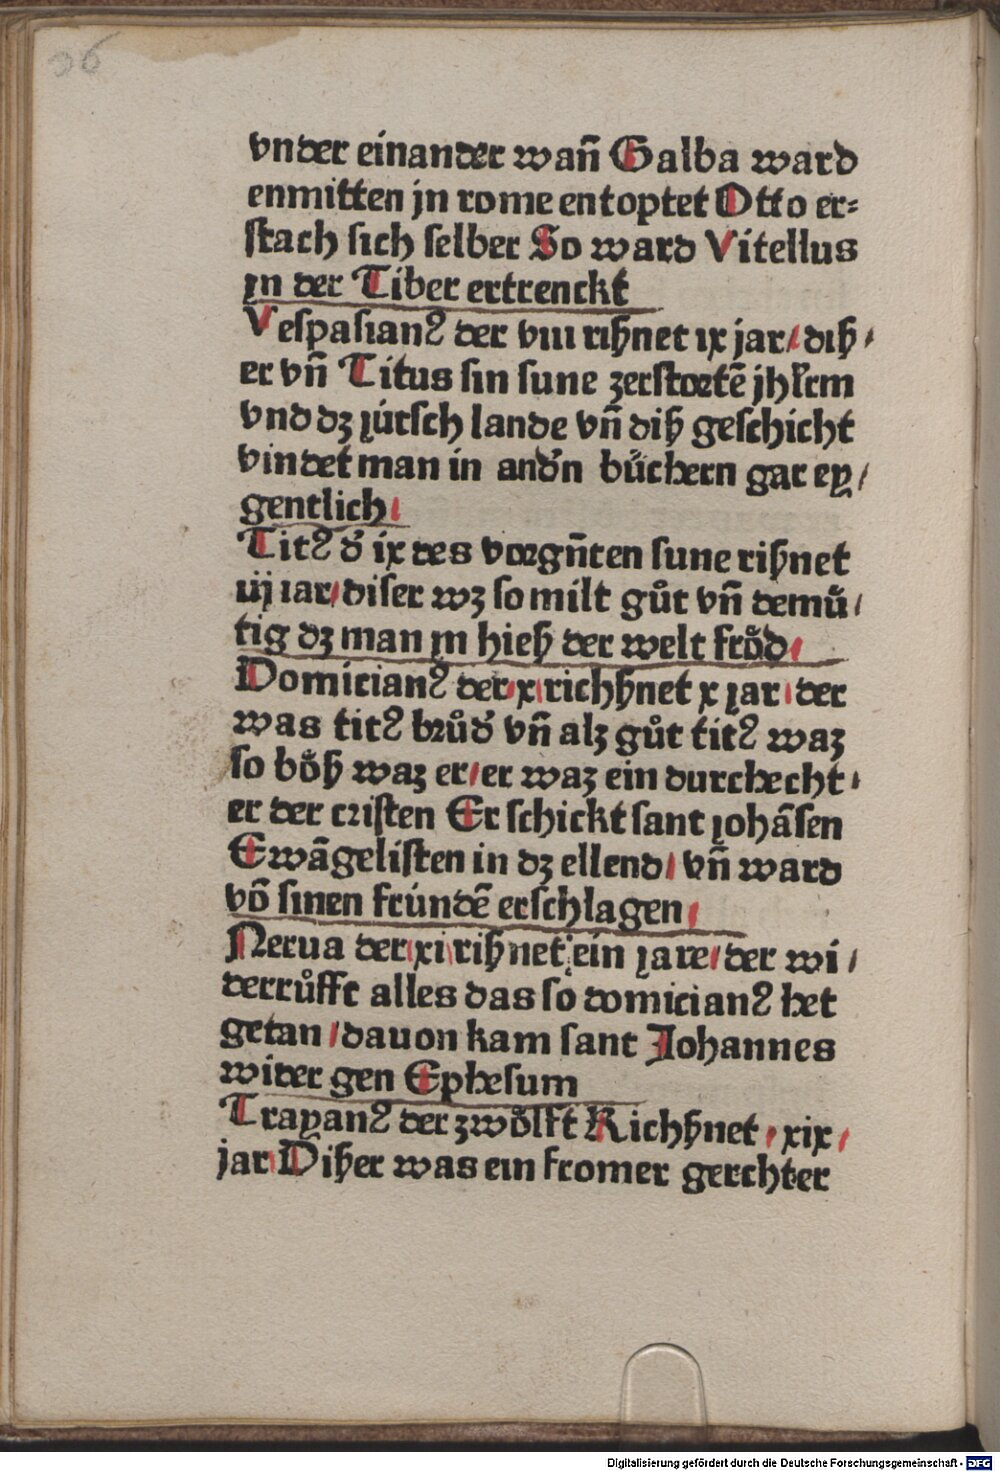 96
vnder einander wañ Galba ward
enmitten jn rome entoptet Otto er⸗
ſtach ſich ſelber So ward Vitellus
ın der Tiber ertrenckt
Veſpaſianꝰ der vııı rıßnet ıx jar / dıß /
er vñ Titus ſin ſune zerſtortē jhl̄rm
vnd dz ȷúrſch lande vñ diß geſchicht
vindet man in andn̄ bůchern gar ey /
gentlich /
Titꝰ d̄ ix des vorgn̄ten ſune rißnet
iij ıar / diſer wz ſo milt gůt vñ demů /
tig dz man ȷn hieß der welt frǒd /
Domicianꝰ der / x / richßnet x ȷar / der
was titꝰ brůd̄ vñ alz gůt titꝰ waz
ſo bǒß waz er / er waz ein durchecht /
er der criſten Er ſchickt ſant ȷohāſen
Ewāgeliſten in dz ellend / vñ ward
vō ſinen frúndē erſchlagen /
Nerua der / xi / rißnet ein ȷare / der wi /
derrůfft alles das ſo domicianꝰ het
getan / dauon kam ſant Johannes
wider gen Epheſum
Trayanꝰ der zwǒlft Richßnet / xix /
jar Dißer was eın fromer gerchter
Digitalisierung gefördert durch die Deutsche Forschungsgemeinschaft - DFG